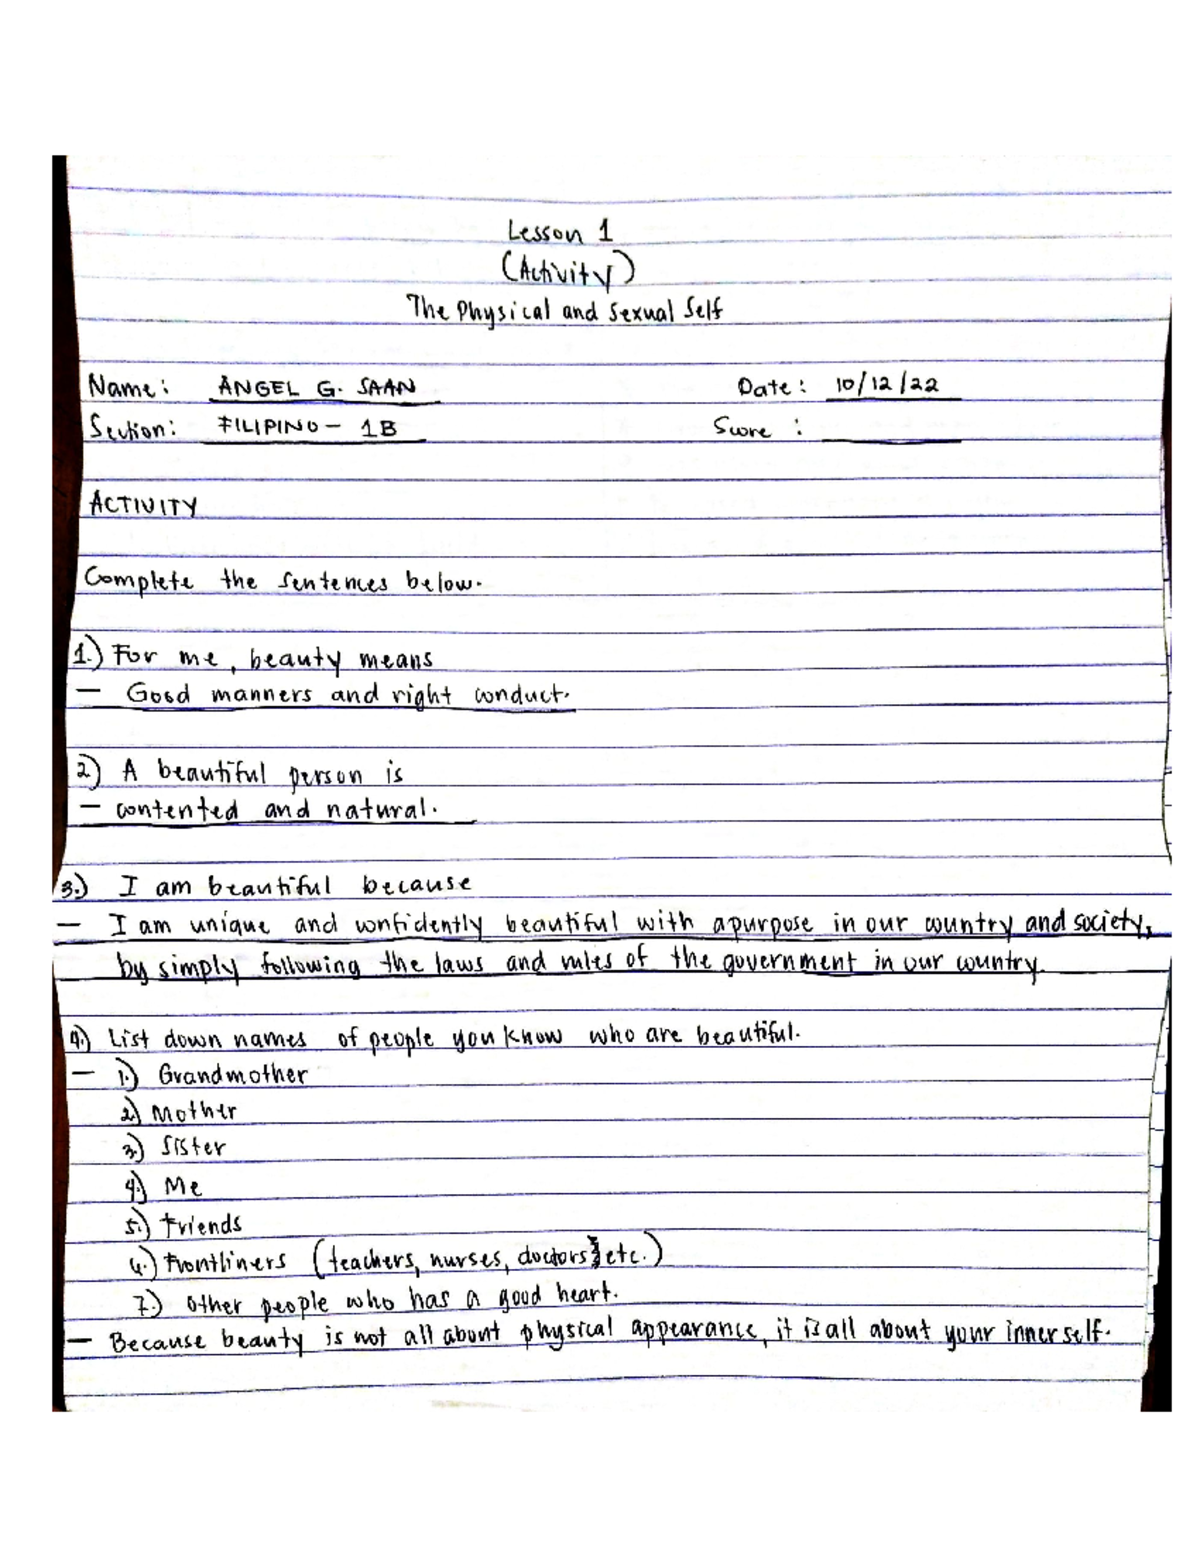 Lesson 1
(Activity)
The Physical and Sexual Self
Name: ANGEL G. SAAN Date: 10/12/22
Section: FILIPINO - 1B Score :
ACTIVITY
Complete the sentences below.
1.) For me, beauty means
- Good manners and right conduct.
2.) A beautiful person is
- contented and natural.
3.) I am beautiful because
- I am unique and confidently beautiful with a purpose in our country and society,
by simply following the laws and rules of the government in our country.
4.) List down names of people you know who are beautiful.
- 1.) Grandmother
2.) Mother
3.) Sister
4.) Me
5.) Friends
6.) Frontliners (teachers, nurses, doctors, etc.)
7.) Other people who has a good heart.
- Because beauty is not all about physical appearance, it is all about your inner self.